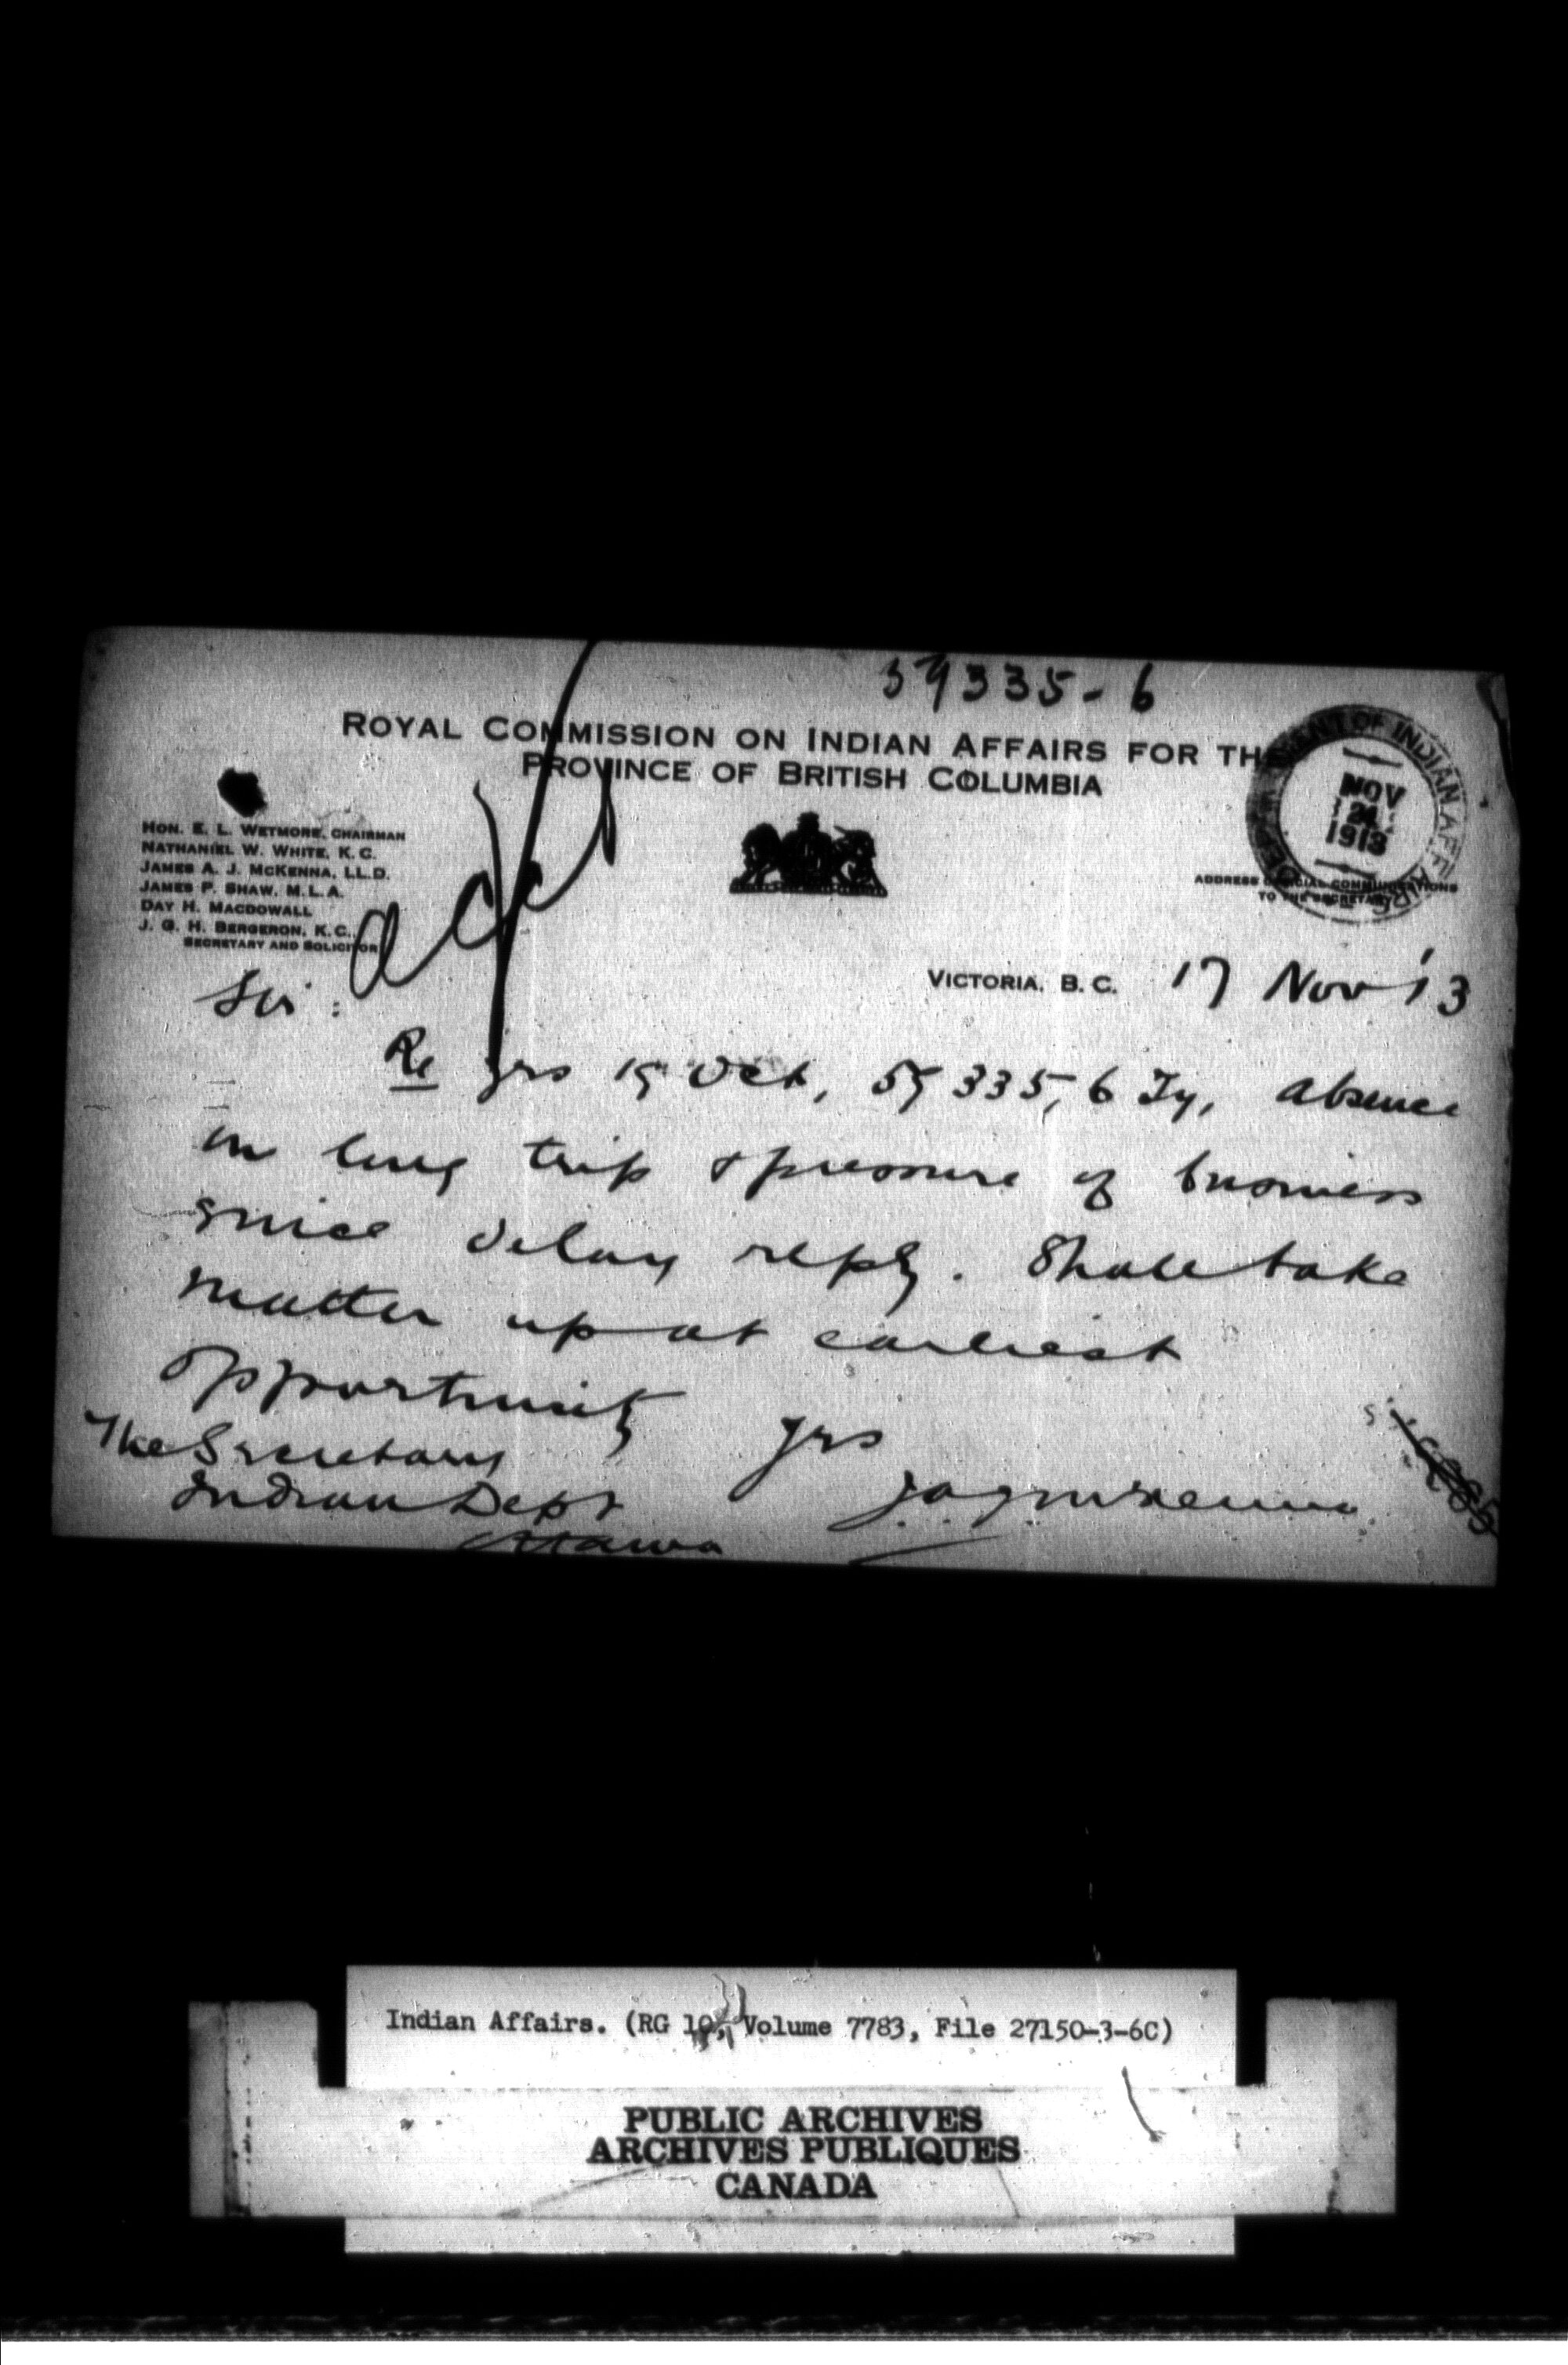 59335-6
ROYAL COMMISSION ON INDIAN AFFAIRS FOR THE
PROVINCE OF BRITISH COLUMBIA
DEPARTMENT OF INDIAN AFFAIRS
NOV
24
1913
HON. E. L. WETMORE, CHAIRMAN
NATHANIEL W. WHITE, K.C.
JAMES A. J. MCKENNA, LL.D.
JAMES P. SHAW, M.L.A.
DAY H. MACDOWALL
J. G. H. BERGERON, K.C.,
SECRETARY AND SOLICITOR
ADDRESS OFFICIAL COMMUNICATIONS
TO THE SECRETARY
ack
VICTORIA, B. C. 17 Nov '13
Sir:
Re yrs 15 Oct, 59335, 6 Ty, absence
on long trip & pressure of business
since delay reply. Shall take
matter up at earliest
opportunity
yrs
The Secretary
Indian Dept
Ottawa
JAJMcKenna
Indian Affairs. (RG 10, Volume 7783, File 27150-3-6C)
PUBLIC ARCHIVES
ARCHIVES PUBLIQUES
CANADA